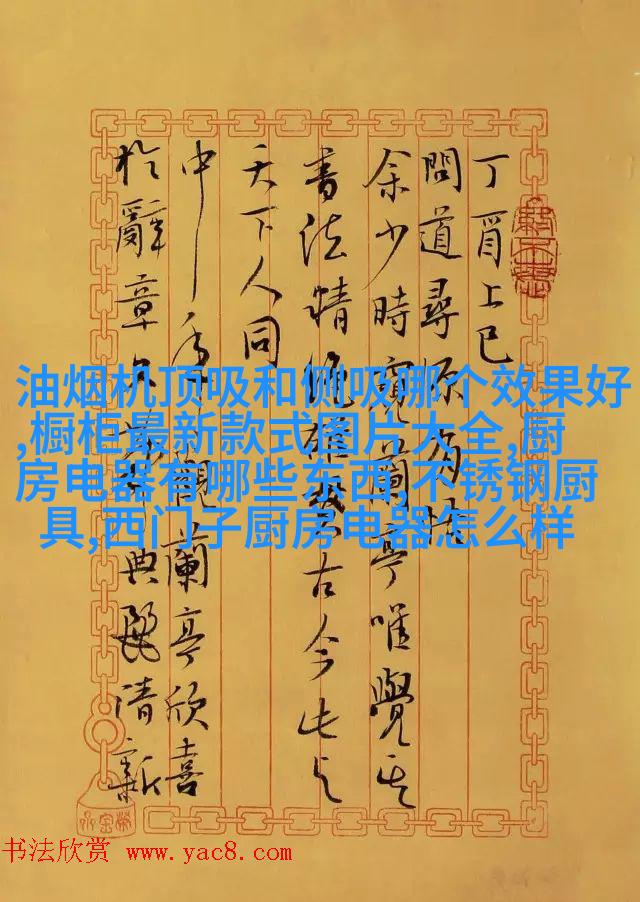 丁酉上巳
問道尋源
余少時窺蘭亭唯覺其
書法精絕古今此與
天下人同
中年觀蘭亭欣喜
於辭章典麗清新
油烟机顶吸和侧吸哪个效果好
,橱柜最新款式图片大全,厨
房电器有哪些东西,不锈钢厨
具,西门子厨房电器怎么样
书法欣赏 www.yac8.com